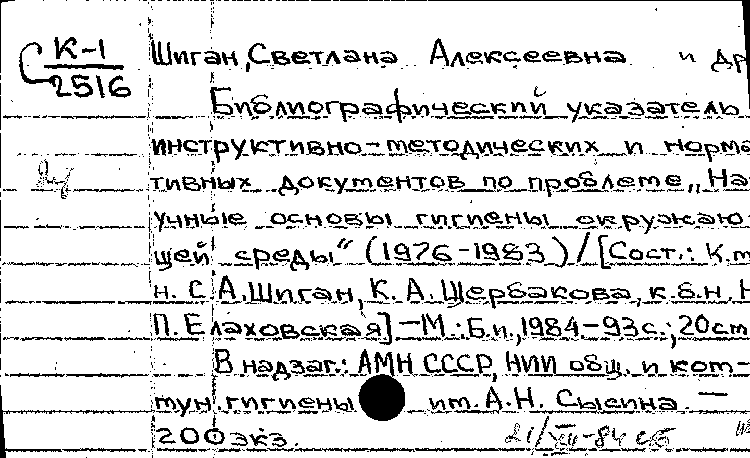 К-1
2516
Шиган, Светлана Алексеевна и др
Библиографический указатель
инструктивно-методических и норма
тивных документов по проблеме „На-
учные основы гигиены окружаю-
щей среды“ (1976-1983) / [Сост.: К.м
н. С.А.Шиган, К. А. Щербакова, к.б.н. Н
П. Елаховская] — М.: Б.и., 1984 - 93с.; 20см
В надзаг.: АМН СССР, НИИ общ. и ком-
мун. гигиены им. А.Н. Сысина. —
200экз.
21/VIII-84